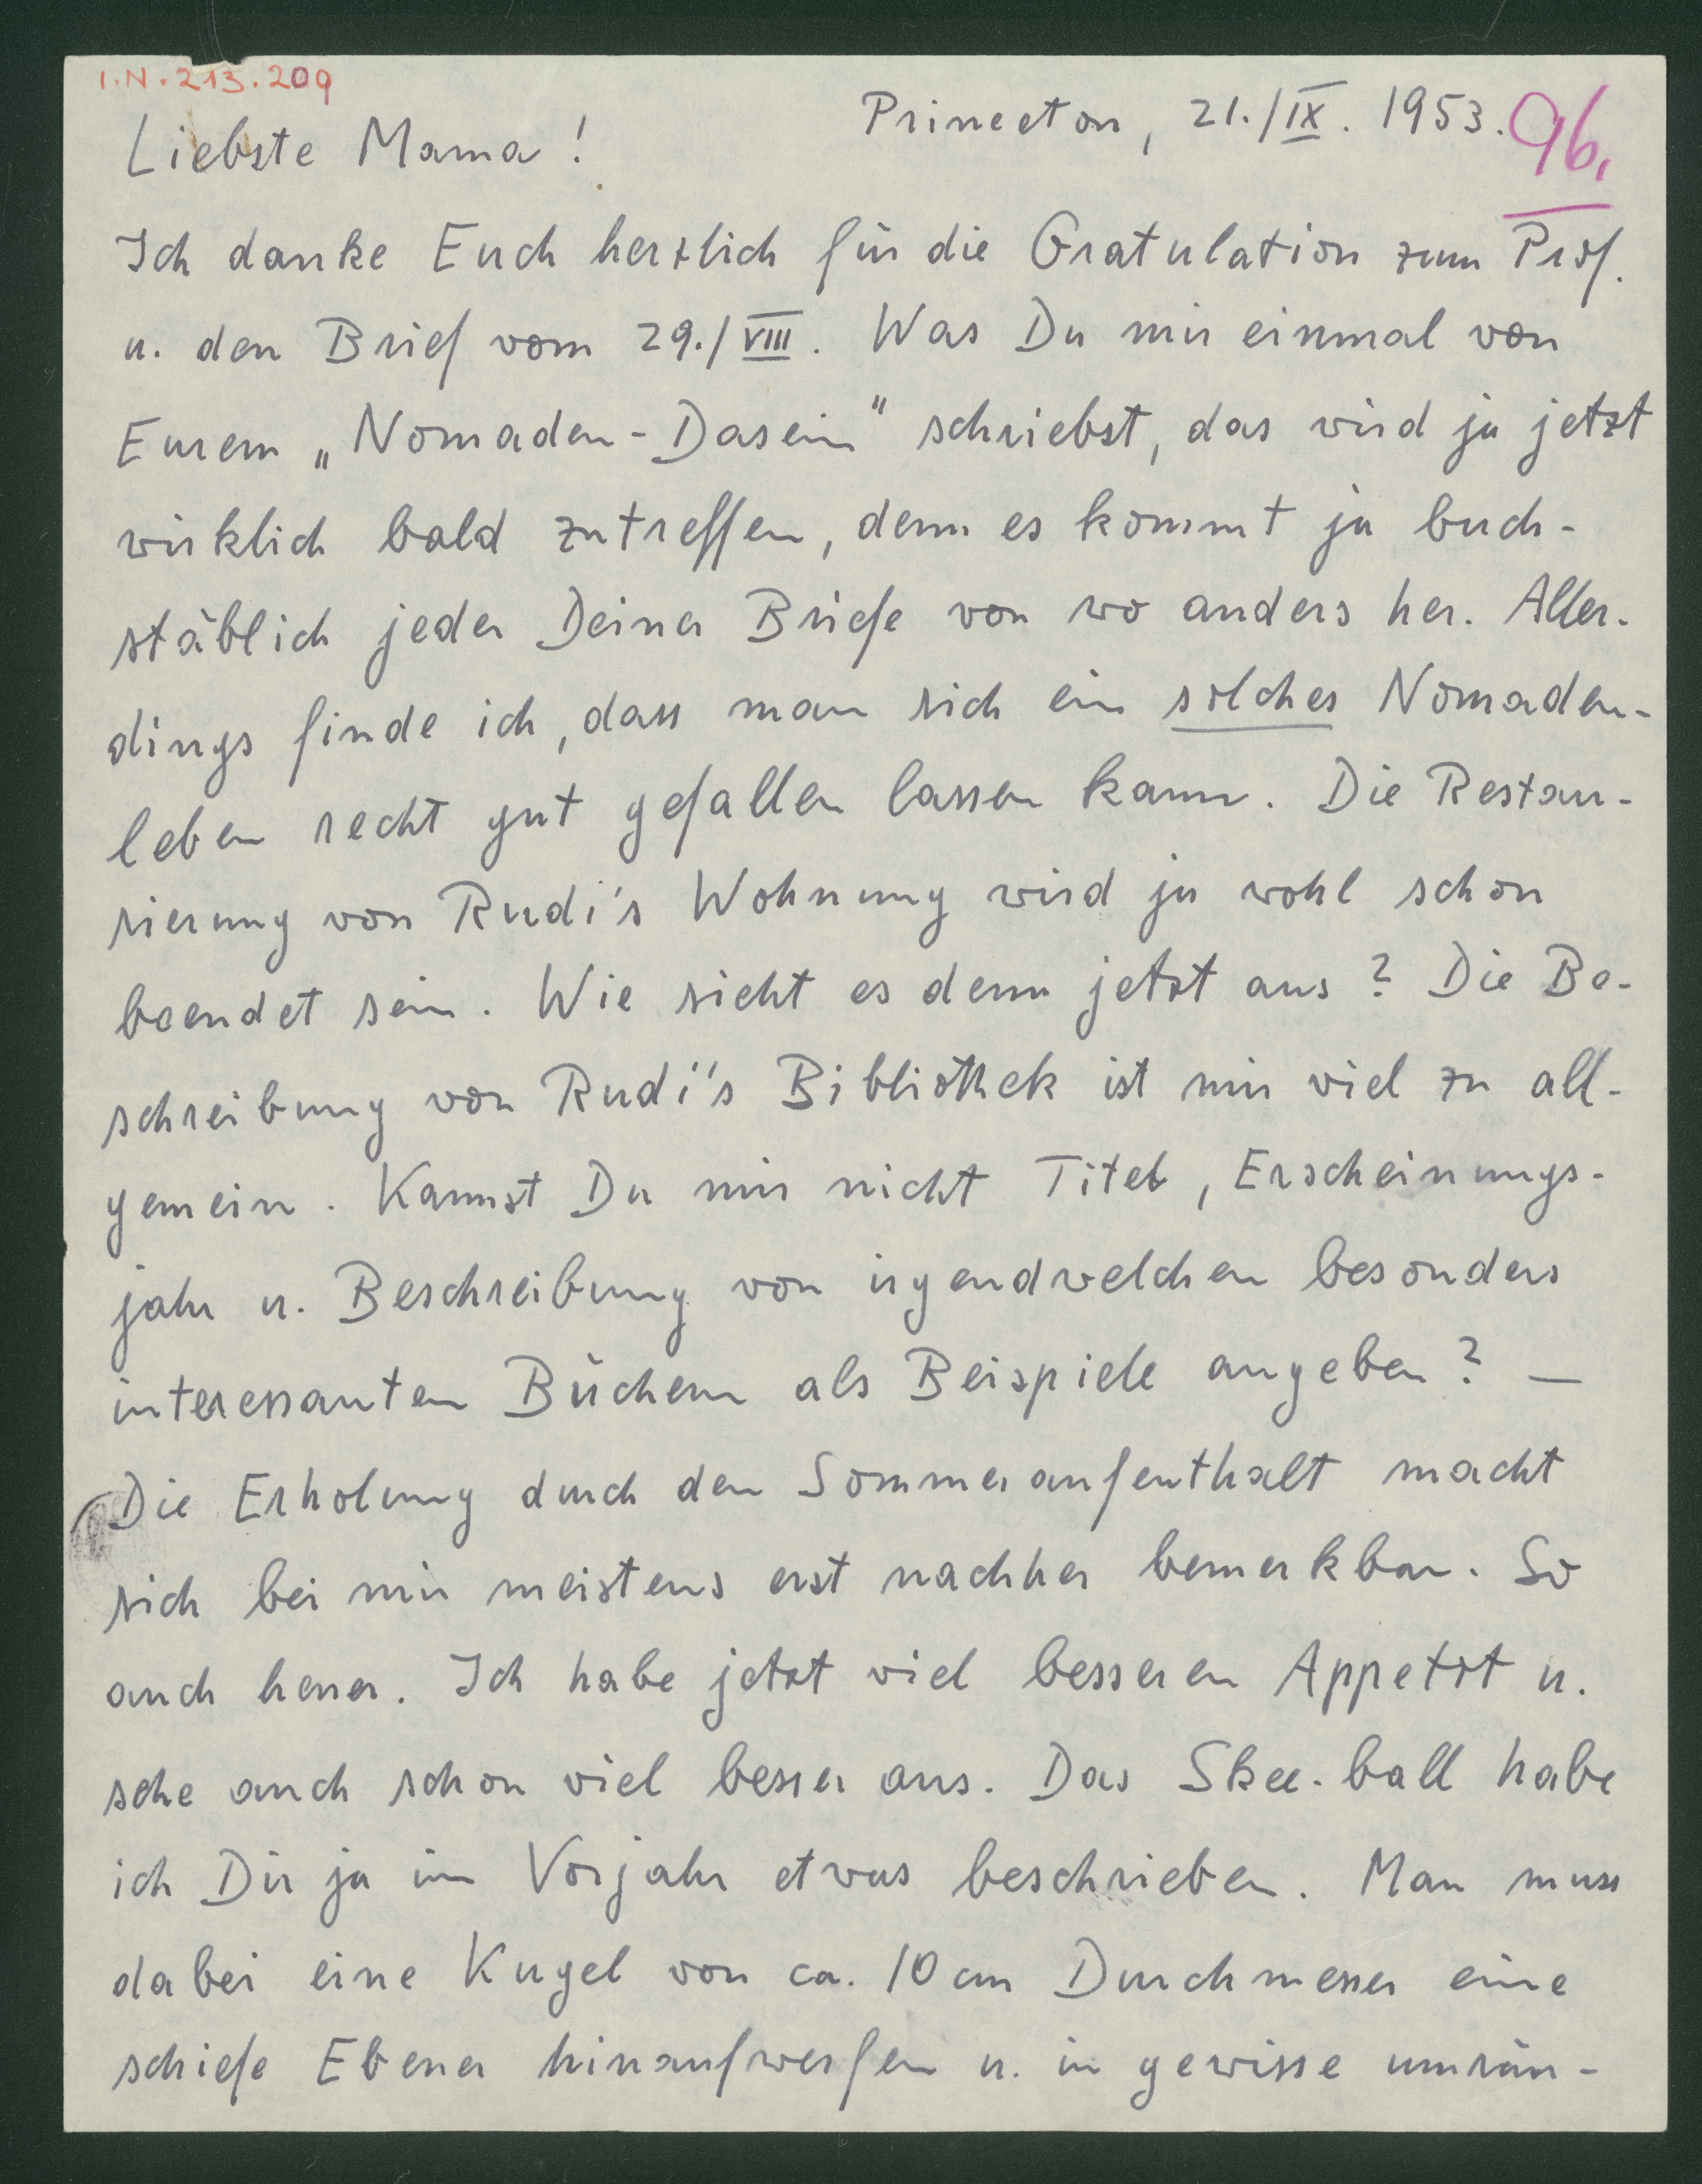 I.N. 213.209
Princeton, 21./IX. 1953.
96.
Liebste Mama!
Ich danke Euch herzlich für die Gratulation zum Prof.
u. den Brief vom 29./VIII. Was Du mir einmal von
Eurem „Nomaden-Dasein" schriebst, das wird ja jetzt
wirklich bald zutreffen, denn es kommt ja buch-
stäblich jeder Deiner Briefe von wo anders her. Aller-
dings finde ich, dass man sich ein solches Nomaden-
leben recht gut gefallen lassen kann. Die Restau-
rierung von Rudi's Wohnung wird ja wohl schon
beendet sein. Wie sieht es denn jetzt aus? Die Be-
schreibung von Rudi's Bibliothek ist mir viel zu all-
gemein. Kannst Du mir nicht Titel, Erscheinungs-
jahr u. Beschreibung von irgendwelchen besonders
interessanten Büchern als Beispiele angeben? —
Die Erholung durch den Sommeraufenthalt macht
sich bei mir meistens erst nachher bemerkbar. So
auch heuer. Ich habe jetzt viel besseren Appetit u.
sehe auch schon viel besser aus. Das Skee-ball habe
ich Dir ja im Vorjahr etwas beschrieben. Man muss
dabei eine Kugel von ca. 10 cm Durchmesser eine
schiefe Ebener hinaufwerfen u. in gewisse umrän-